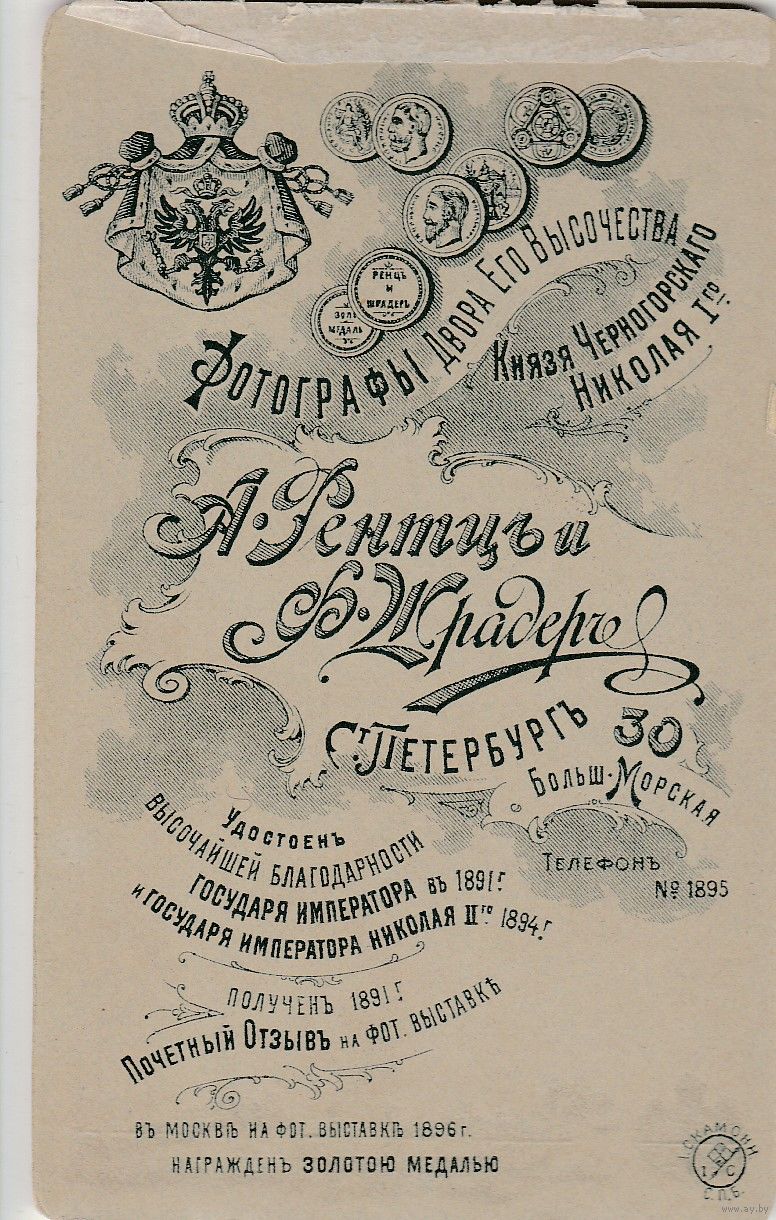 РЕНЦЪ
И
ШРАДЕРЪ
ЗОЛ
МЕДАЛЬ
Фотографы Двора Его Высочества
Князя Черногорскаго
Николая Iго
А. Рентцъ и
Ф. Шрадеръ
Ст Петербургъ 30
Больш. Морская
Телефонъ
№ 1895
Удостоенъ
Высочайшей Благодарности
Государя Императора въ 1891 г.
и Государя Императора Николая IIго 1894 г.
Полученъ 1891 г.
Почетный Отзывъ на фот. выставкѣ
въ Москвѣ на фот. выставкѣ 1896 г.
награжденъ золотою медалью
I С
С.П.Б.
www.ay.by